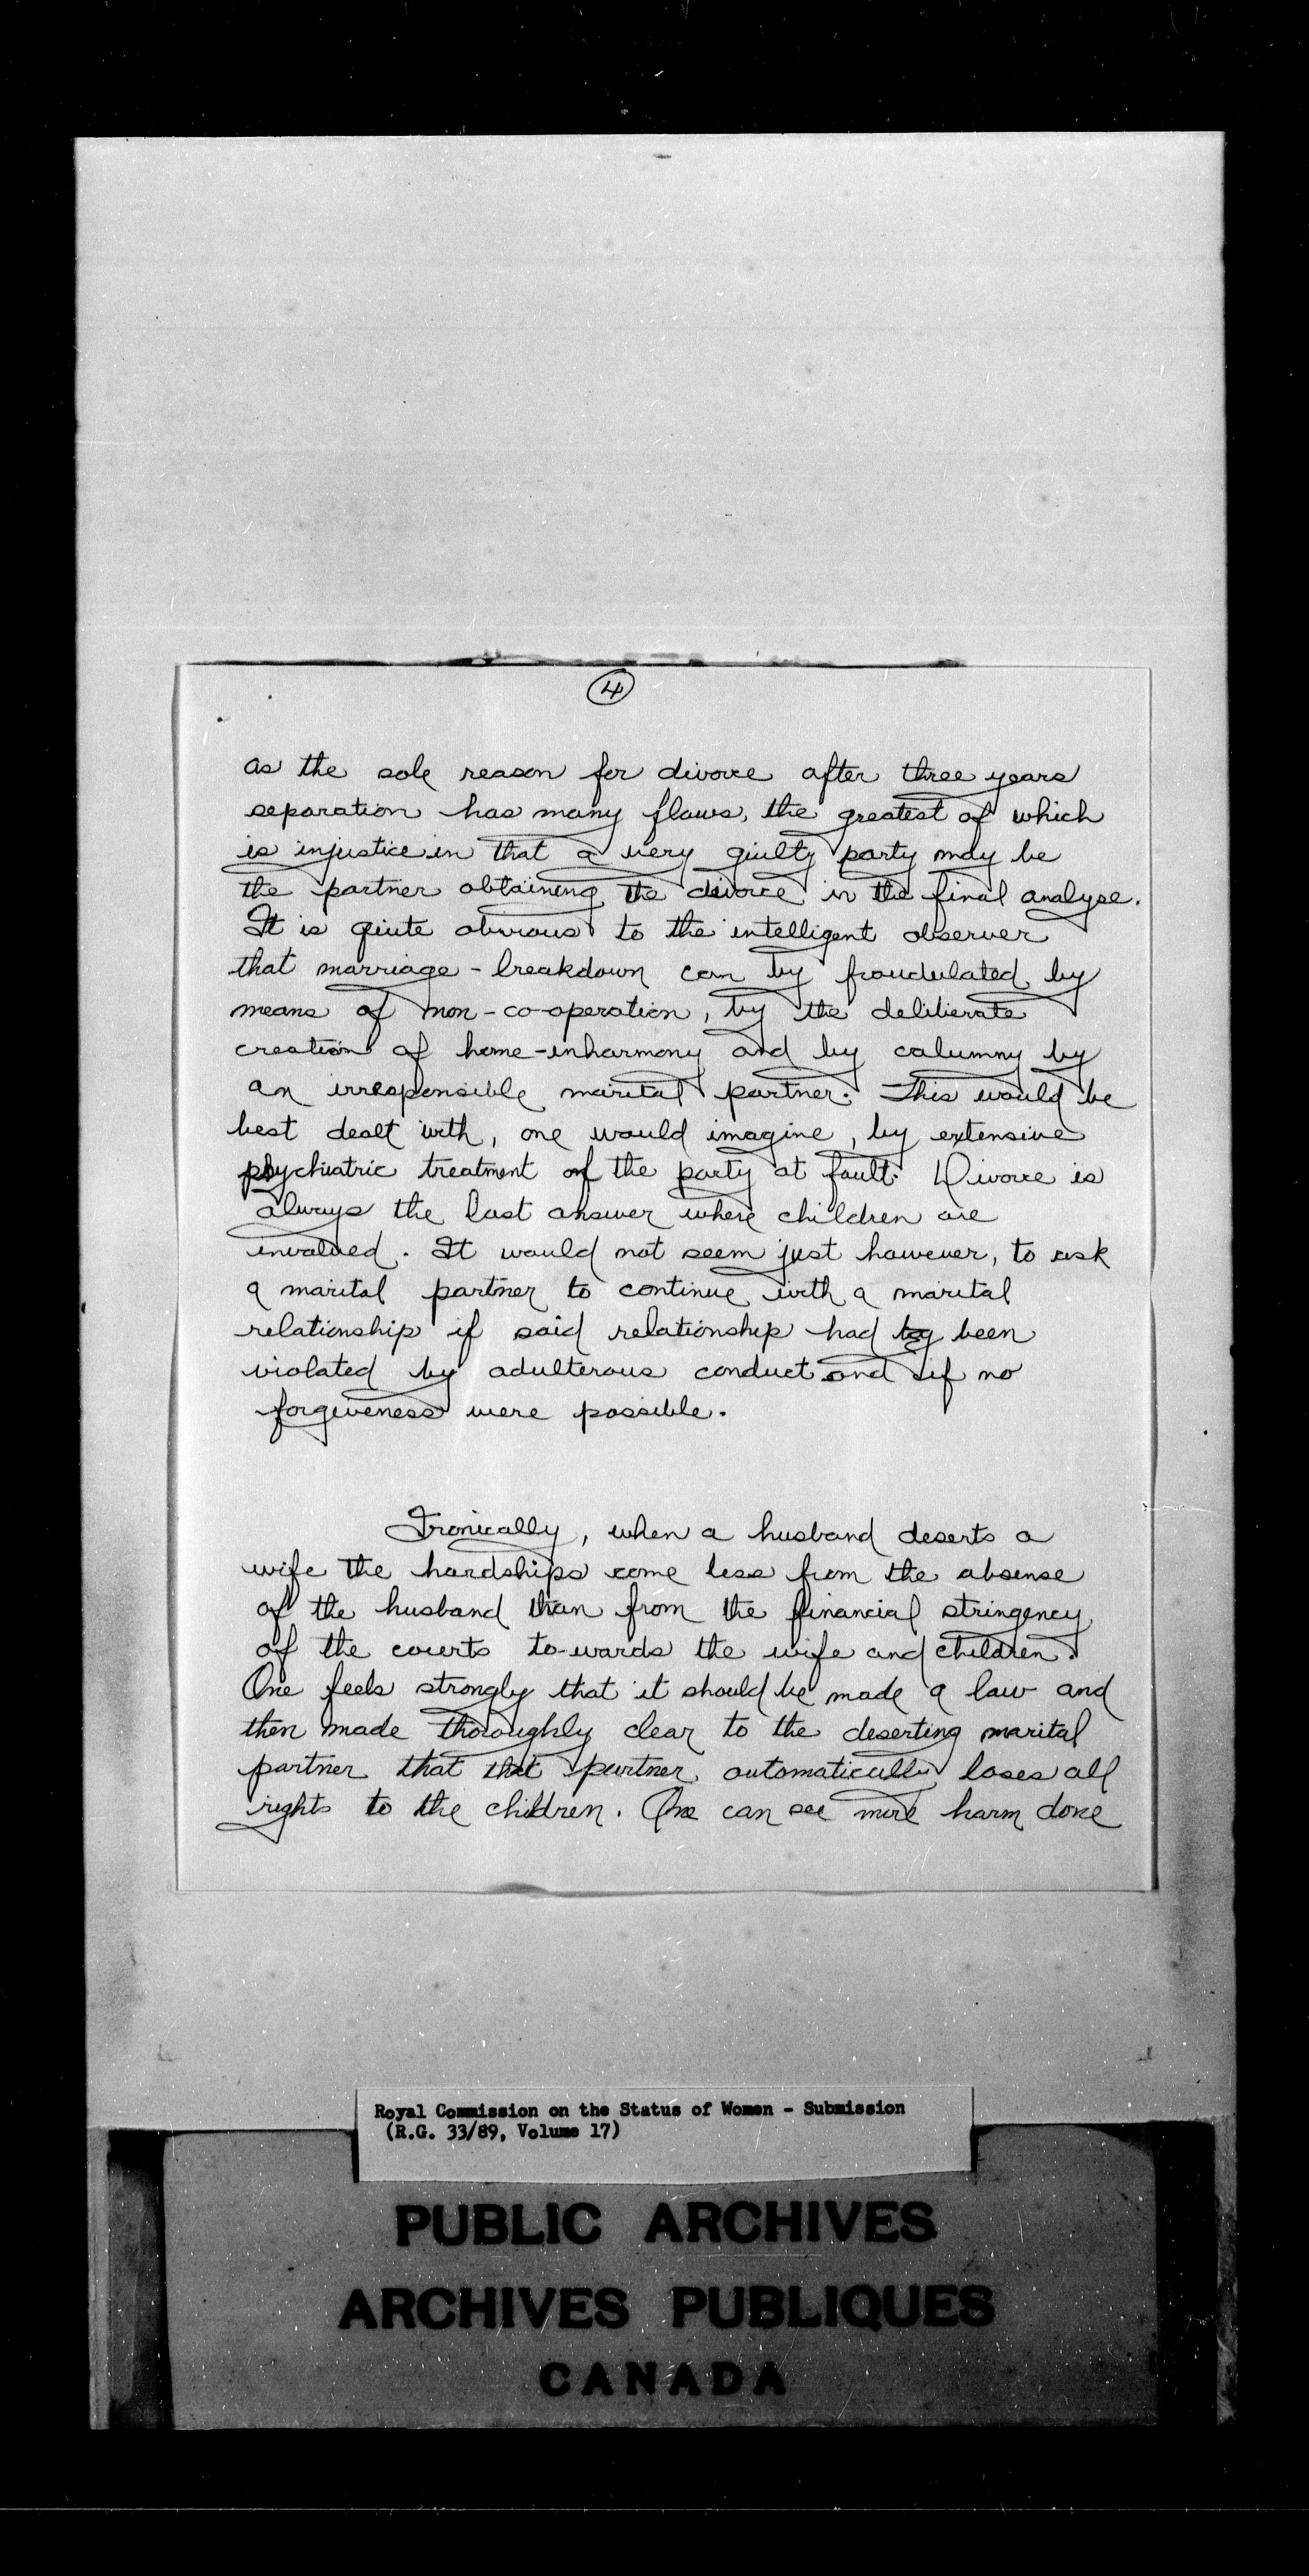 4
as the sole reason for divorce after three years
separation has many flaws, the greatest of which
is injustice in that a very guilty party may be
the partner obtaining the divorce in the final analyse.
It is quite obvious to the intelligent observer
that marriage-breakdown can by fraudulated by
means of non-co-operation, by the deliberate
creation of home-inharmony and by calumny by
an irresponsible marital partner. This would be
best dealt with, one would imagine, by extensive
psychiatric treatment of the party at fault. Divorce is
always the last answer where children are
involved. It would not seem just however, to ask
a marital partner to continue with a marital
relationship if said relationship had been
violated by adulterous conduct and if no
forgiveness were possible.
Ironically, when a husband deserts a
wife the hardships come less from the absense
of the husband than from the financial stringency
of the courts to-wards the wife and children.
One feels strongly that it should be made a law and
then made thoroughly clear to the deserting marital
partner that that partner automatically loses all
rights to the children. One can see more harm done
Royal Commission on the Status of Women - Submission
(R.G. 33/89, Volume 17)
PUBLIC ARCHIVES
ARCHIVES PUBLIQUES
CANADA